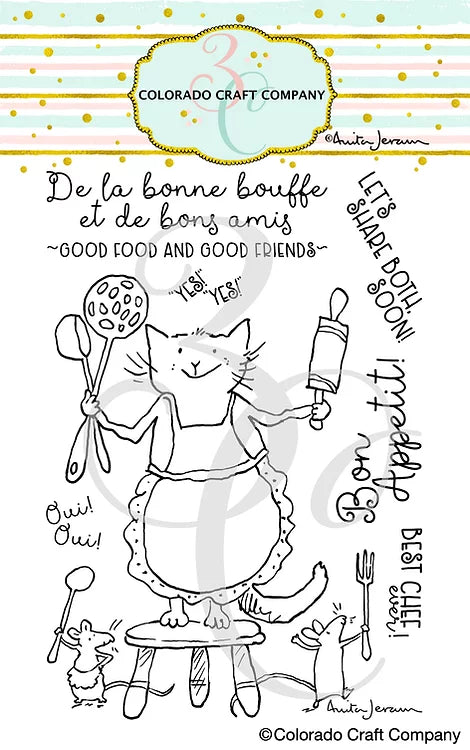 3C
COLORADO CRAFT COMPANY
©Anita Jeram
De la bonne bouffe
et de bons amis
~GOOD FOOD AND GOOD FRIENDS~
"YES!"
"YES!"
LET'S
SHARE BOTH,
SOON!
Bon
Appetit!
Oui!
Oui!
BEST CHEF
ever!
Anita Jeram
3C
©Colorado Craft Company